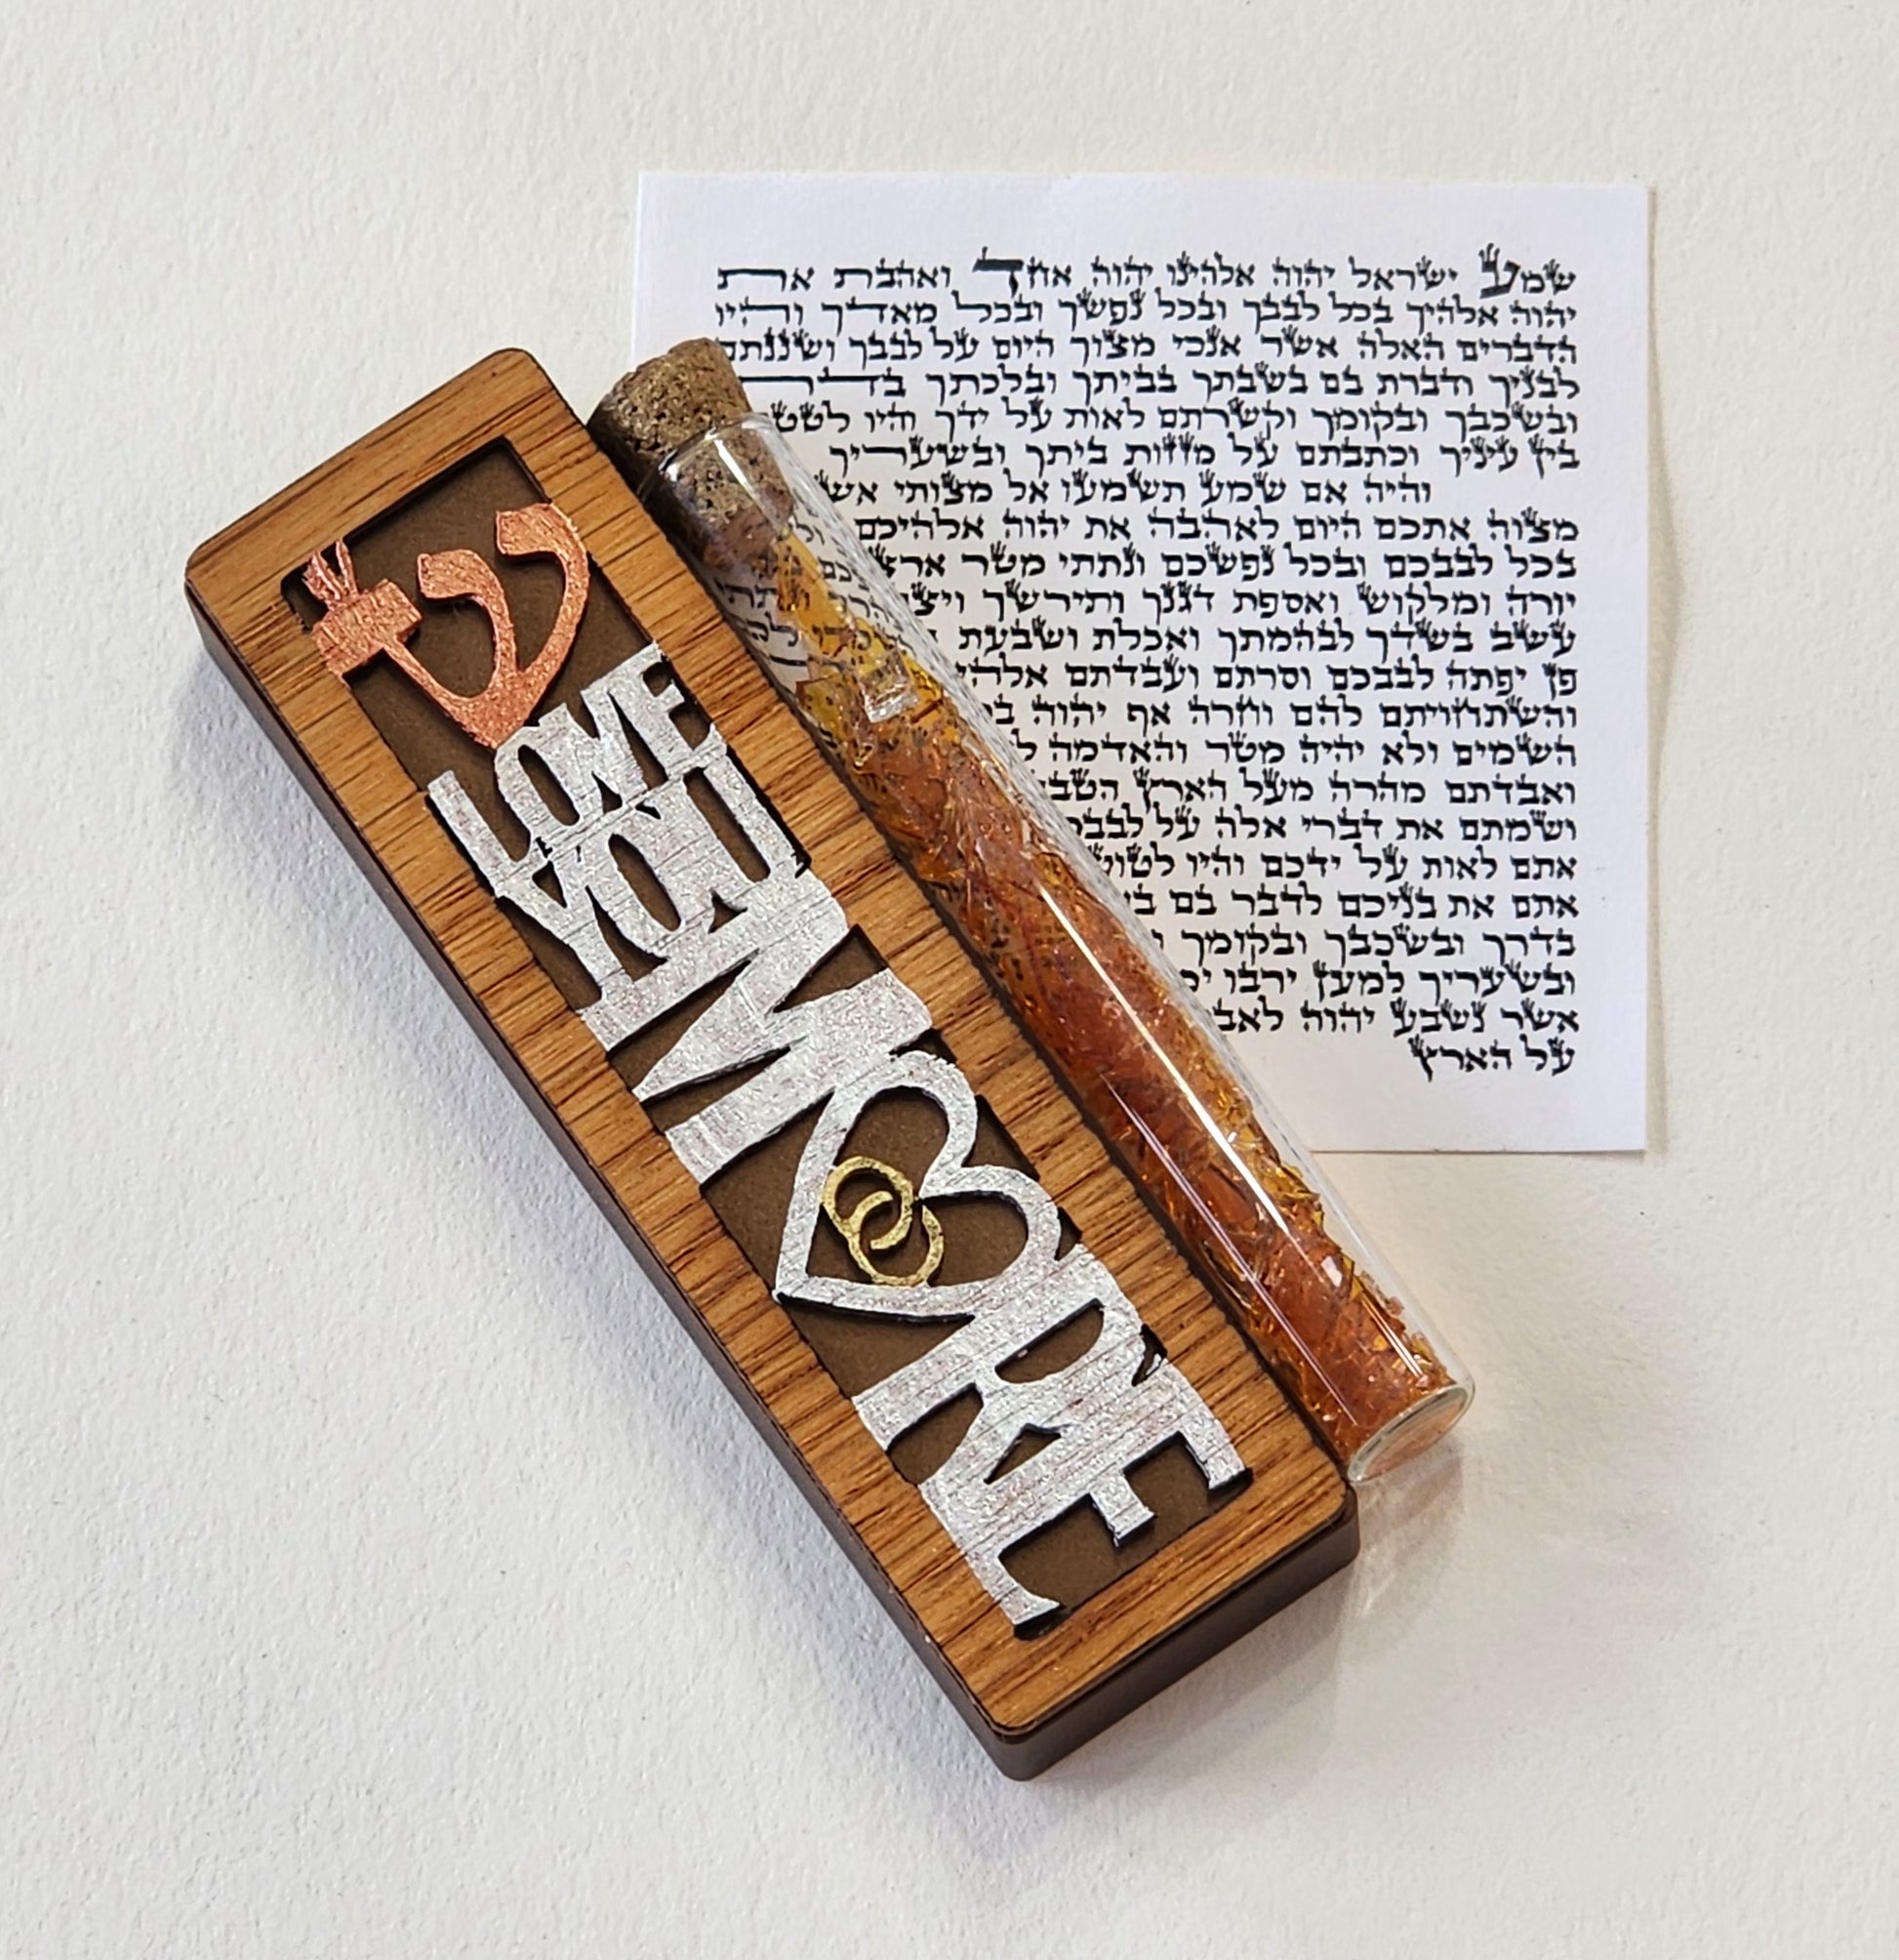 ש
LOVE
YOU
MORE
שמע ישראל יהוה אלהינו יהוה אחד ואהבת את
יהוה אלהיך בכל לבבך ובכל נפשך ובכל מאדך והיו
הדברים האלה אשר אנכי מצוך היום על לבבך ושננתם
לבניך ודברת בם בשבתך בביתך ובלכתך
ובשכבך ובקומך וקשרתם לאות על ידך והיו
בין עיניך וכתבתם על מזזות ביתך ובשעריך
והיה אם שמע תשמעו אל מצותי
מצוה אתכם היום לאהבה את יהוה אלהיכם
בכל לבבכם ובכל נפשכם ונתתי מטר
יורה ומלקוש ואספת דגנך ותירשך
עשב בשדך לבהמתך ואכלת ושבעת
פן יפתה לבבכם וסרתם ועבדתם
והשתחויתם להם וחרה אף יהוה
השמים ולא יהיה מטר והאדמה
ואבדתם מהרה מעל הארץ
ושמתם את דברי אלה על
אתם לאות על ידכם והיו
אתם את בניכם לדבר בם
בדרך ובשכבך ובקומך
ובשעריך למען ירבו
אשר נשבע יהוה
על הארץ